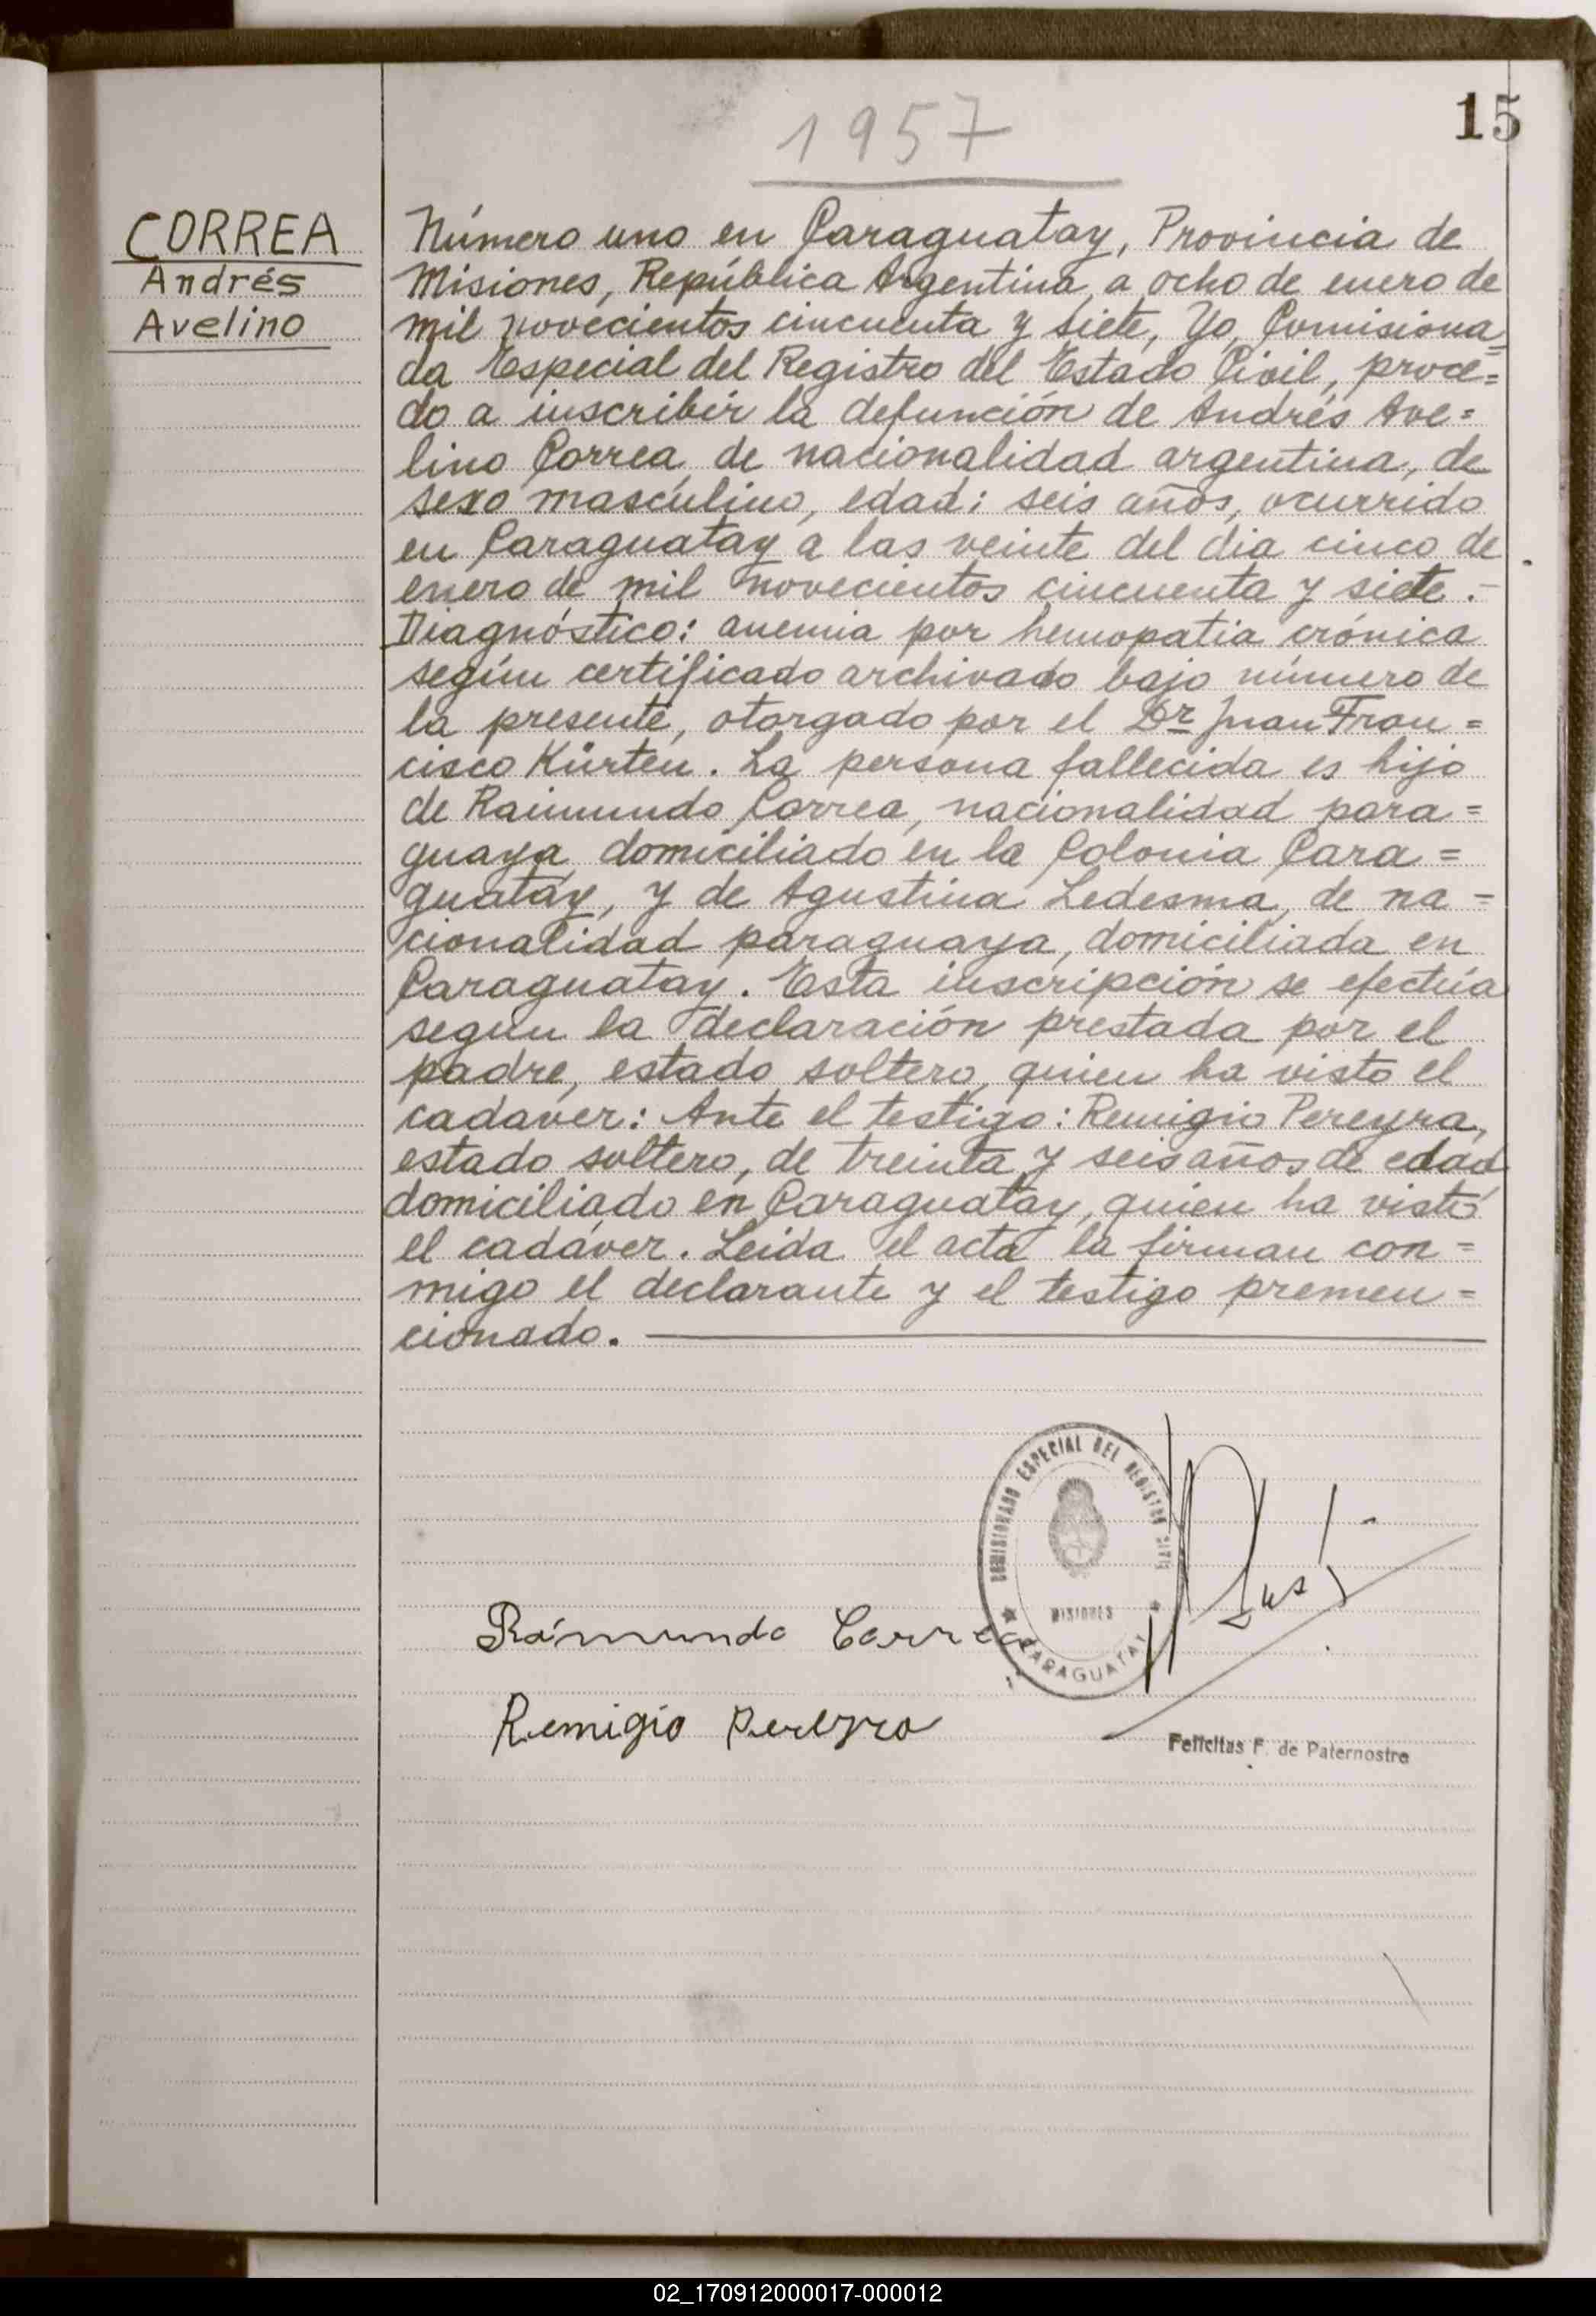 15
1957
CORREA
Andrés
Avelino
Número uno en Caraguatay, Provincia de
Misiones, República Argentina, a ocho de enero de
mil novecientos cincuenta y siete, Yo, Comisiona=
da Especial del Registro del Estado Civil, proce=
do a inscribir la defunción de Andrés Ave=
lino Correa, de nacionalidad argentina, de
sexo masculino, edad: seis años, ocurrido
en Caraguatay a las veinte del dia cinco de
enero de mil novecientos cincuenta y siete.-
Diagnóstico: anemia por hemopatia crónica
según certificado archivado bajo número de
la presente, otorgado por el Dr Juan Fran=
cisco Kürten. La persona fallecida es hijo
de Raimundo Correa, nacionalidad para=
guaya domiciliado en la Colonia Cara=
guatay, y de Agustina Ledesma, de na=
cionalidad paraguaya, domiciliada en
Caraguatay. Esta inscripción se efectúa
según la declaración prestada por el
padre, estado soltero, quien ha visto el
cadaver: Ante el testigo: Remigio Pereyra,
estado soltero, de treinta y seis años de edad
domiciliado en Caraguatay, quien ha visto
el cadáver. Leida el acta la firman con=
migo el declarante y el testigo premen=
cionado.
COMISIONADO ESPECIAL DEL REGISTRO CIVIL
MISIONES
CARAGUATAY
Raimundo Correa
Remigio Pereyra
Felicitas F. de Paternostro
02_170912000017-000012